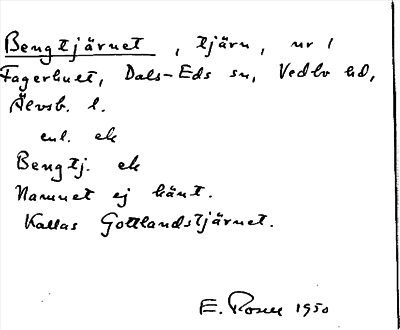 Bengtjärnet, tjärn, nr 1
Fagerhuet, Dals-Eds sn, Vedbo hd,
Älvsb. l.
enl. ek
Bengtj. ek
Namnet ej känt.
Kallas Gottlandstjärnet.
E. Rosell 1950